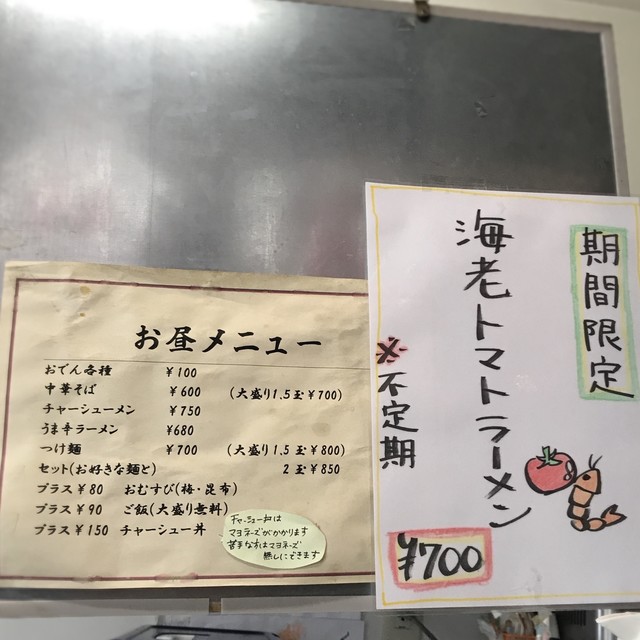 お昼メニュー
おでん各種 ¥100
中華そば ¥600 (大盛り1.5玉¥700)
チャーシューメン ¥750
うま辛ラーメン ¥680
つけ麺 ¥700 (大盛り1.5玉¥800)
セット(お好きな麺と) 2玉¥850
プラス¥80 おむすび(梅・昆布)
プラス¥90 ご飯(大盛り無料)
プラス¥150 チャーシュー丼
チャーシュー丼は
マヨネーズがかかります
苦手な方はマヨネーズ
無しにできます
期間限定
海老トマトラーメン
※不定期
¥700